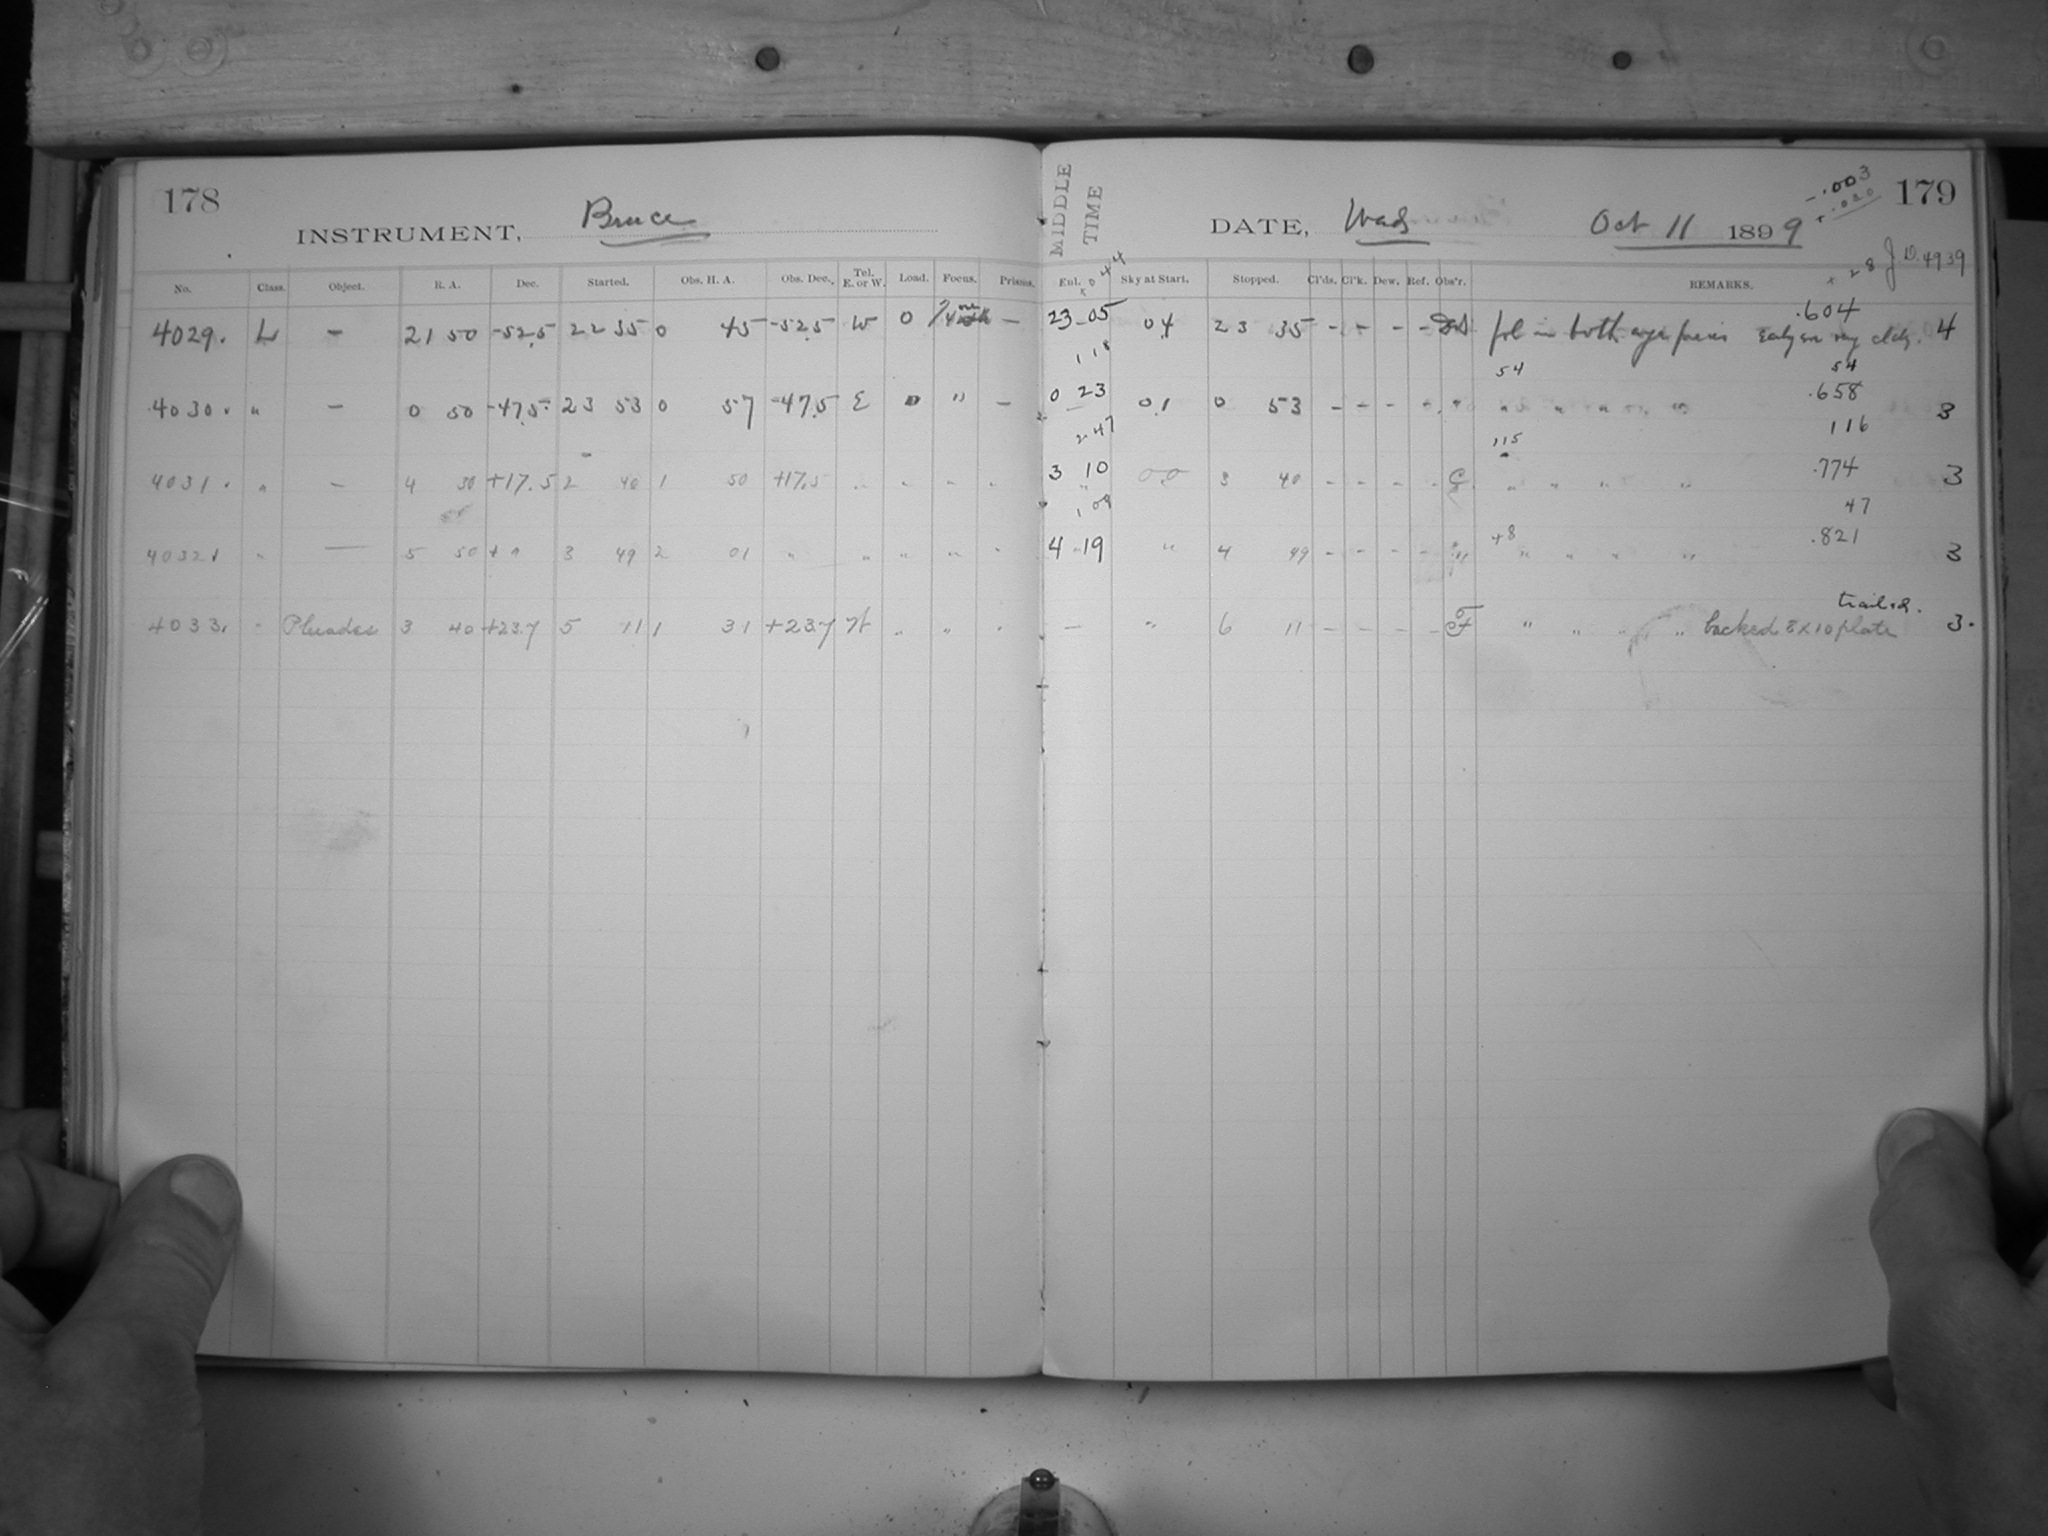 178
INSTRUMENT, Bruce
MIDDLE TIME
DATE, Wed Oct 11 1899
-.003
+.020
179
J.D. 4939
No. Class. Object. R. A. Dec. Started. Obs. H. A. Obs. Dec. Tel. E. or W. Load. Focus. Prisms. Enl. Sky at Start. Stopped. Cl'ds. Cl'k. Dew. Ref. Obs'r. REMARKS.
.604
4029. L - 21 50 -52.5 22 35 0 45 -52.5 W 0 - 23-05 04 23 35 - - - - fol in both 4
118
54 54
.658
4030. " - 0 50 -47.5 23 53 0 57 -47.5 E 0 " - 0 23 0.1 0 53 - - - - " " " " " " 3
2 47
115 116
.774
4031. " - 4 50 +17.5 2 40 1 50 +17.5 " " " " 3 10 00 3 40 - - - - C " " " " 3
1 09
47
+8 .821
4032. " — 5 50 + " 3 49 2 01 " " " " " 4-19 " 4 49 - - - - " " " " " 3
trailed.
4033. " Pleiades 3 40 +23.7 5 11 1 31 +23.7 W " " " - " 6 11 - - - - F " " " " backed 8x10 plate 3.